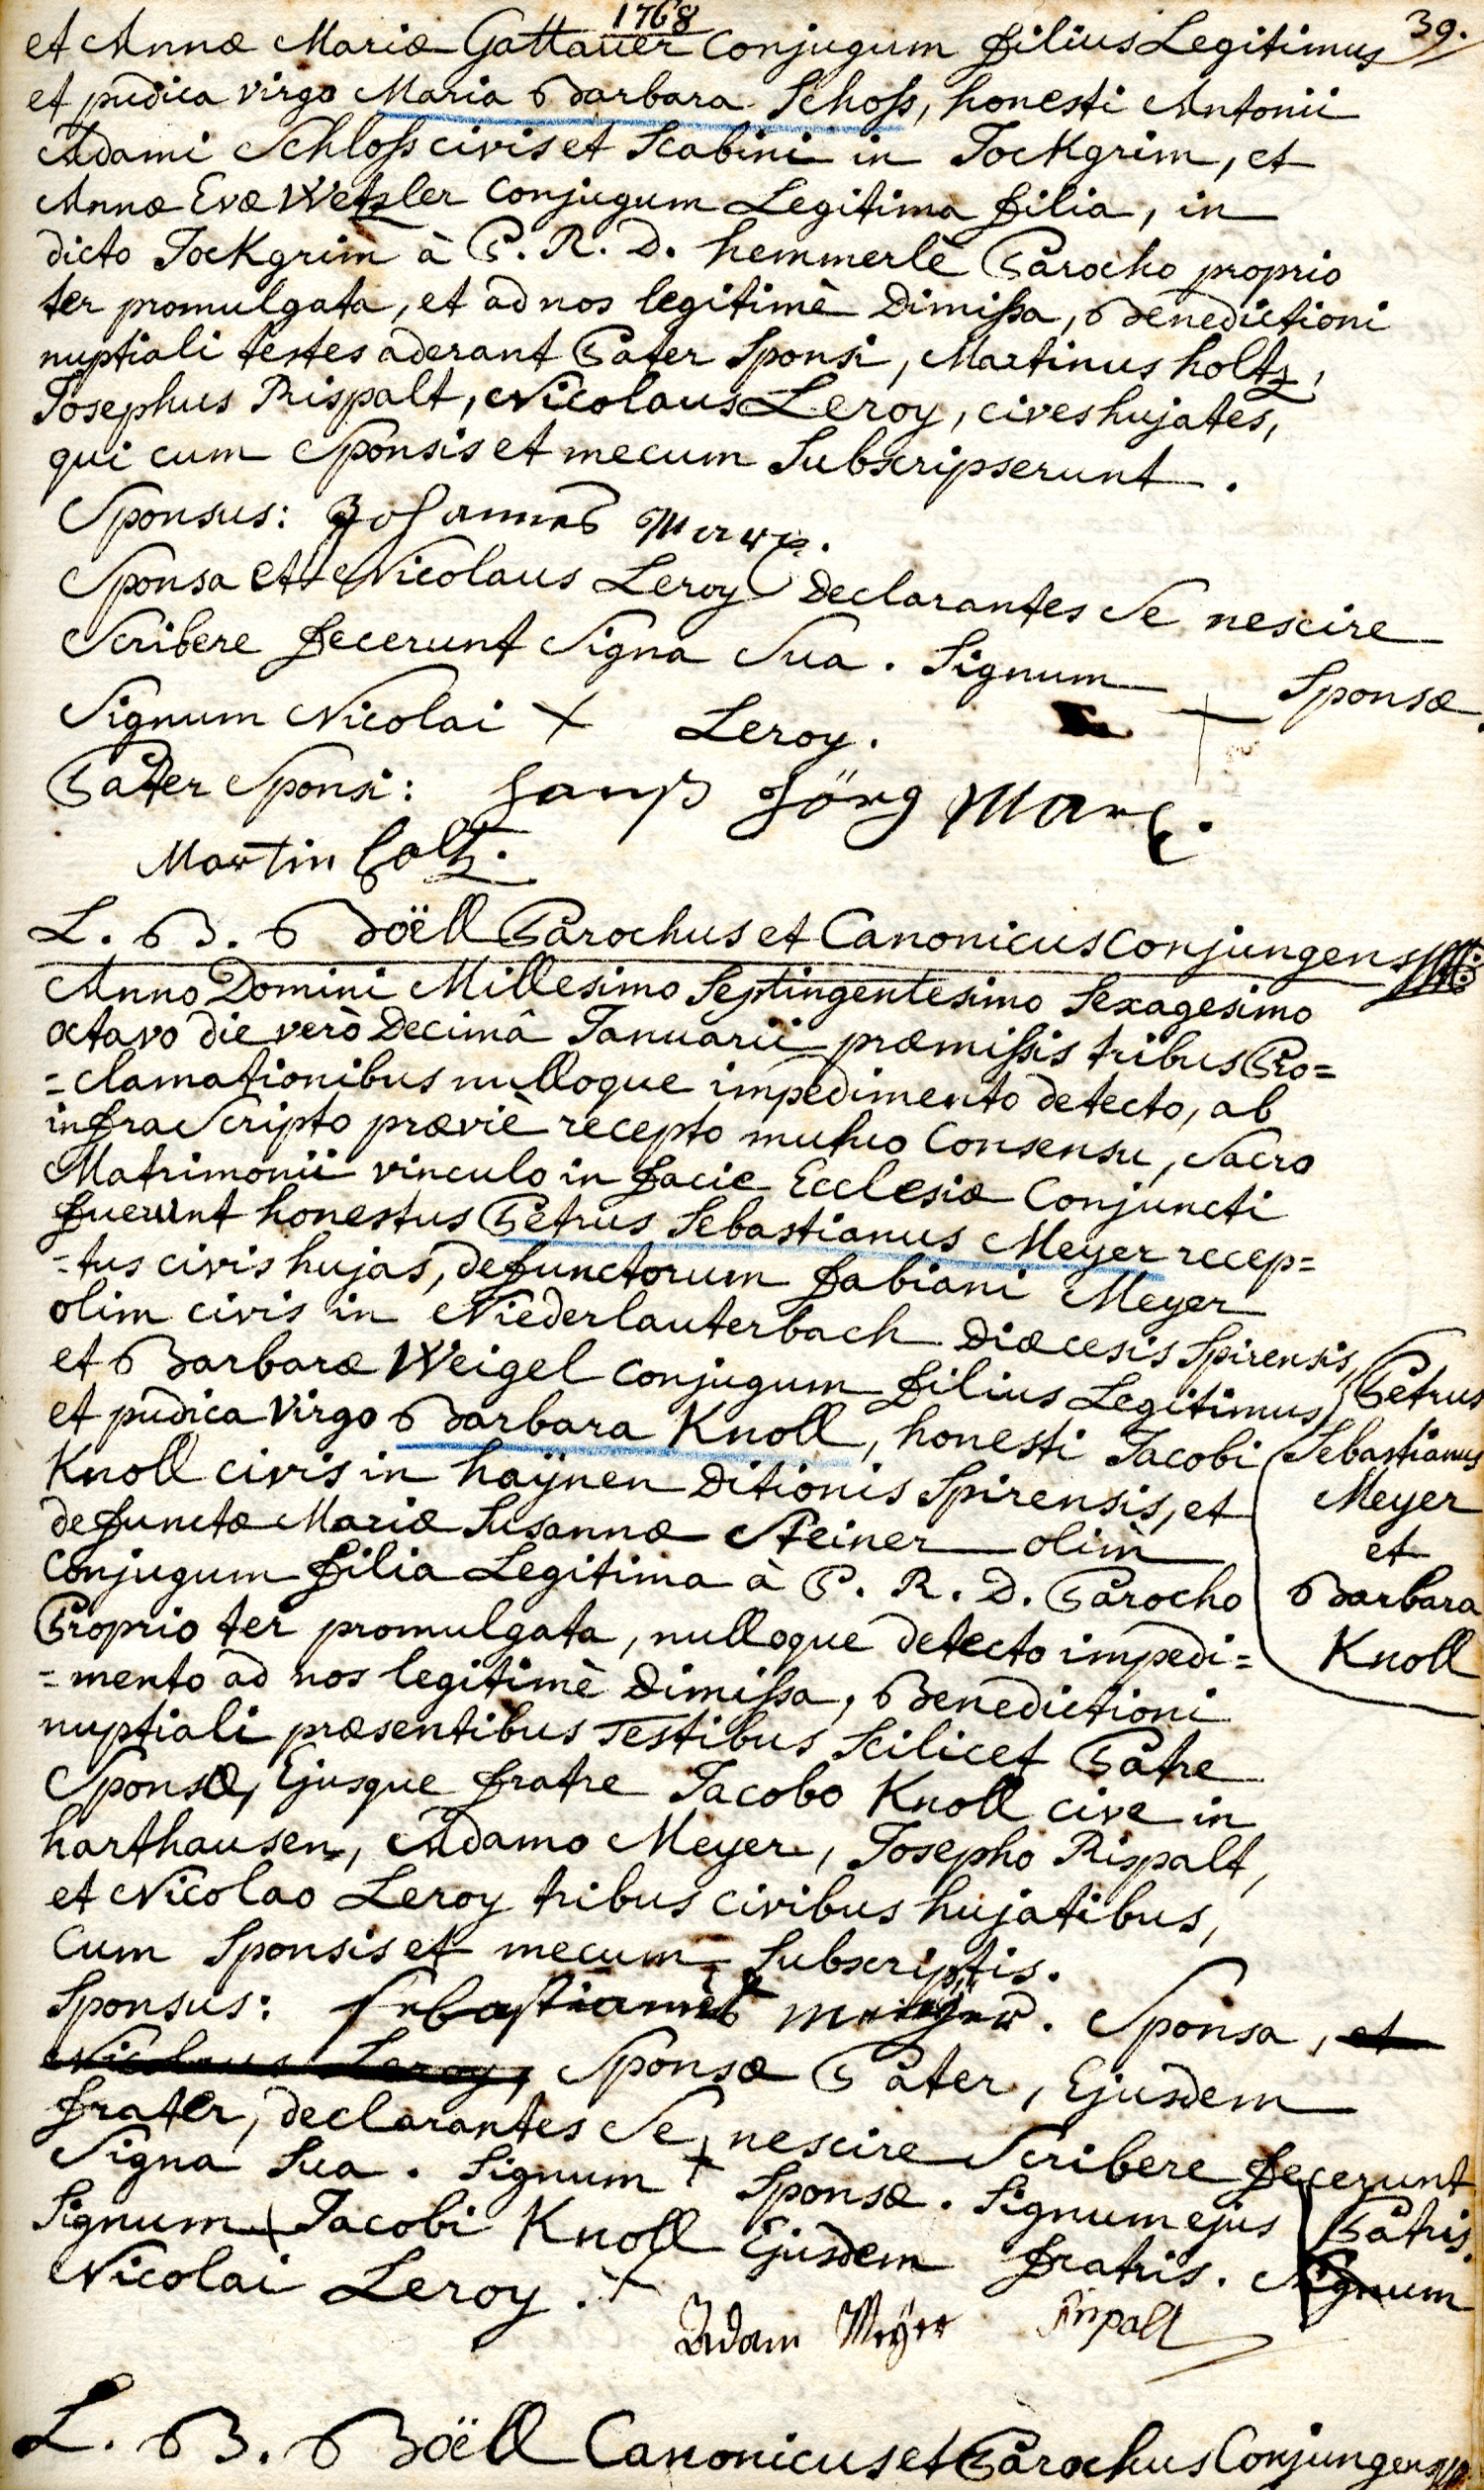 1768
39.
et Annæ Mariæ Gattauer Conjugum filius Legitimus
et pudica virgo Maria Barbara Schoss, honesti Antonii
Adami Schloss civis et Scabini in Jockgrim, et
Annæ Evæ Wetzler Conjugum Legitima filia, in
dicto Jockgrim à P. R. D. hemmerlè Parocho proprio
ter promulgata, et ad nos legitimè Dimissa, Benedictioni
nuptiali testes aderant Pater Sponsi, Martinus holtz,
Josephus Rispalt, Nicolaus Leroy, cives hujates,
qui cum Sponsis et mecum Subscripserunt.
Sponsus: Johannes Marx.
Sponsa et Nicolaus Leroy Declarantes Se nescire
Scribere fecerunt Signa Sua. Signum + Sponsæ.
Signum Nicolai + Leroy.
Pater Sponsi: Hanß Jörg Marx.
Martin Holtz.
L. B. Boëll Parochus et Canonicus Conjungens
Anno Domini Millesimo Septingentesimo Sexagesimo
octavo die verò Decimâ Januarii præmissis tribus Pro=
=clamationibus nulloque impedimento detecto, ab
infra Scripto præviè recepto mutuo Consensu, Sacro
Matrimonii vinculo in facie Ecclesiæ Conjuncti
fuerunt honestus Petrus Sebastianus Meyer recep=
=tus civis hujas, defunctorum fabiani Meyer
olim civis in Niederlauterbach Diæcesis Spirensis,
et Barbaræ Weigel conjugum filius Legitimus
et pudica Virgo Barbara Knoll, honesti Jacobi
Knoll civis in haÿnen Ditionis Spirensis, et
defunctæ Mariæ Susannæ Steiner olim
Conjugum filia Legitima à P. R. D. Parocho
Proprio ter promulgata, nulloque detecto impedi=
=mento ad nos legitimè Dimissa, Benedictioni
nuptiali præsentibus Testibus Scilicet Patre
Sponsæ, Ejusque fratre Jacobo Knoll cive in
harthausen, Adamo Meyer, Josepho Rispalt,
et Nicolao Leroy tribus civibus hujatibus,
Cum Sponsis et mecum Subscriptis.
Petrus
Sebastianus
Meyer
et
Barbara
Knoll
Sponsus: Sebastianus Meÿer. Sponsa, et
Nicolaus Leroy, Sponsæ Pater, Ejusdem
frater, declarantes Se nescire Scribere fecerunt
Signa Sua. Signum + Sponsæ. Signum ejus Patris.
Signum + Jacobi Knoll Ejusdem fratris. Signum
Nicolai Leroy. +
Adam Meÿer Rispalt
L. B. Boëll Canonicus et Parochus Conjungens